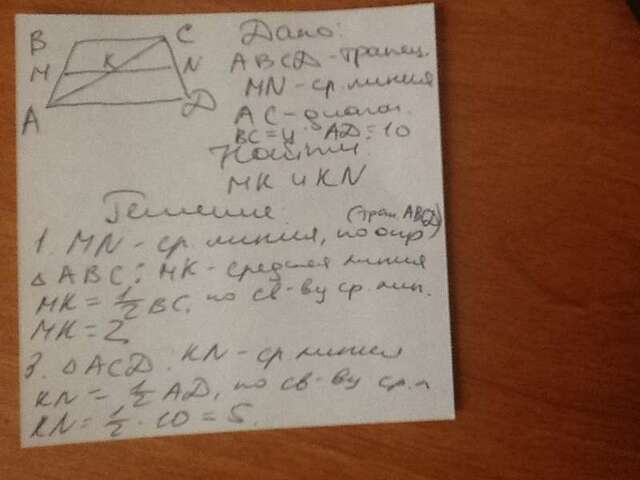 B C Дано:
M K N ABCD - трапец.
A D MN - ср. линия
AC - диагон.
BC = 4 AD = 10
Найти:
MK и KN
Решение:
1. MN - ср. линия, по опр (трап. ABCD)
△ ABC: MK - средняя линия
MK = 1/2 BC, по св-ву ср. лин.
MK = 2
3. △ ACD: KN - ср. линия
KN = 1/2 AD, по св-ву ср. л.
KN = 1/2 · 10 = 5.